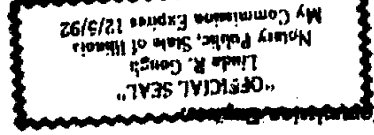 "OFFICIAL SEAL"
Linda R. Gough
Notary Public, State of Illinois
My Commission Expires 12/5/92